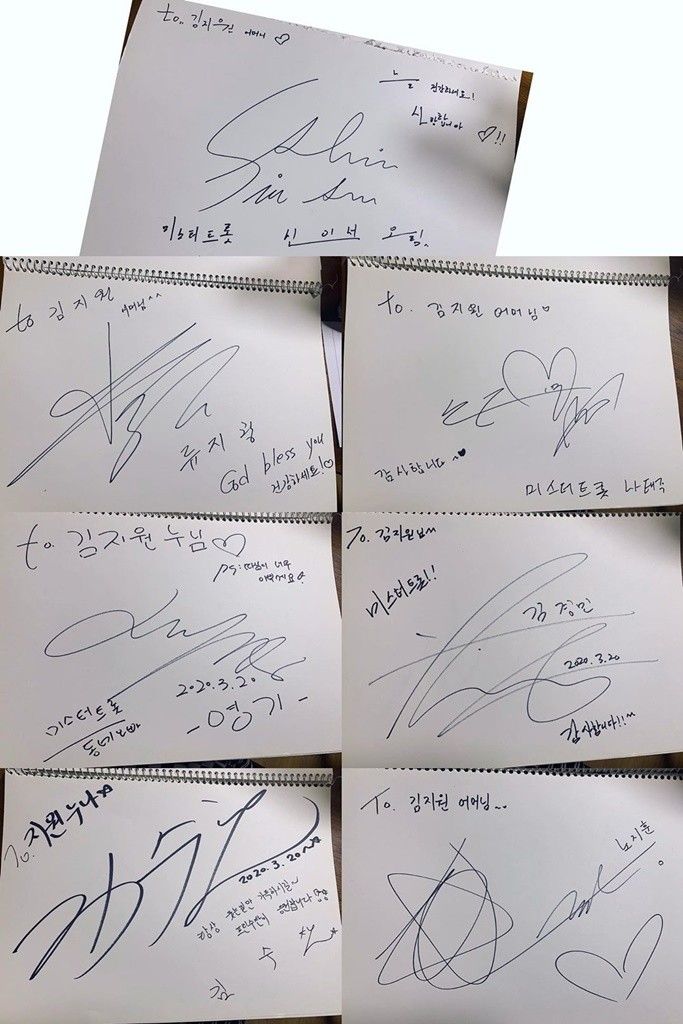 to. 김지원 어머니 ♡
건강하세요!
사랑합니다 ♡!!
Shin
미스터트롯 신인선 올림.
to 김지원 어머님^^
류지광
God bless you
건강하세요!♡
to. 김지원 어머님♡
감사합니다~♥
미스터트롯 나태주
to. 김지원 누님♡
ps: 따님이 너무
이쁘세요
2020.3.20
미스터트롯
-영기-
To. 김지원님^^
미스터트롯!!
김경민
2020.3.20
감사합니다!!^^
To. 지원누나☆
2020.3.20~☆
항상
김수찬
To. 김지원 어머님...
노지훈